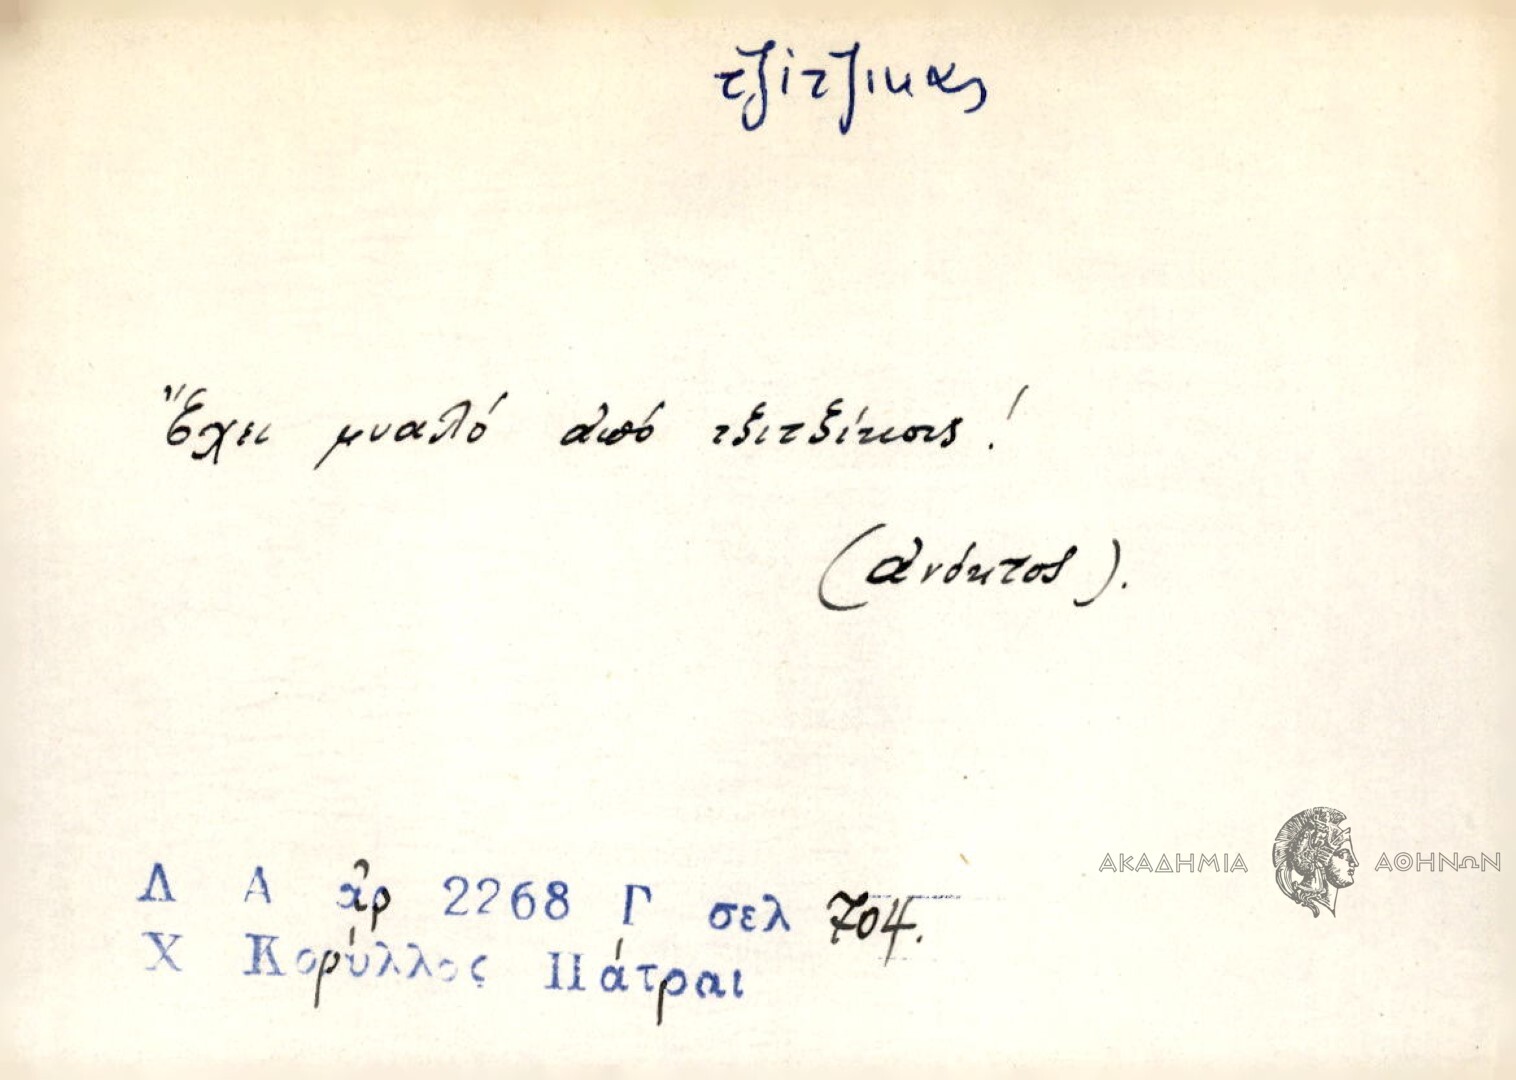 τζίτζικας
Ἔχει μυαλό ἀπό τζιτζίκους!
(ἀνόητος).
Λ Α ἀρ 2268 Γ σελ 704.
Χ Κορύλλος Πάτραι
ΑΚΑΔΗΜΙΑ ΑΘΗΝΩΝ